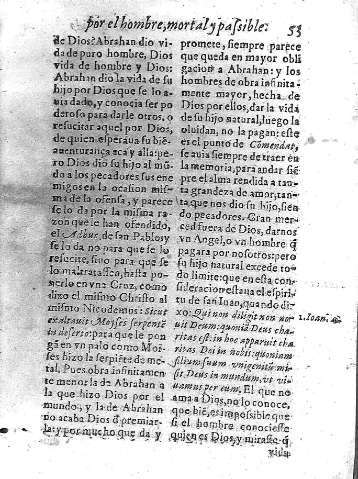 por el hombre, mortal y passible: 53
de Dios? Abrahan dio vi
da de puro hombre, Dios
vida de hombre y Dios:
Abrahan dio la vida de su
hijo por Dios que se lo a-
uia dado, y conocia ser po
deroso para darle otros, o
resucitar aquel por Dios,
de quien esperaua su bie-
auenturança aca y alla: pe
ro Dios dio su hijo al mũ-
do a los pecadores sus ene
migos en la ocasion mis-
ma de la ofensa, y parece
se lo da por la misma ra-
zon que le han ofendido,
el de san Pablo, y
se lo da no para que se lo
resucite, sino para que se
lo maltratassen, hasta po-
nerlo en vna Cruz, como
dixo el mismo Christo al
mismo Nicodemus: Sicut
exaltauit Moyses serpentẽ
in deserto: para que le pon
gã en vn palo como Moi-
ses hizo la serpiẽte de me-
tal. Pues obra infinitamen
te menor la de Abrahan a
la que hizo Dios por el
mundo, y la de Abrahan
no acaba Dios ã premiar-
la: y por mucho que da y
promete, siempre parece
que queda en mayor obli
gacion a Abrahan: y los
hombres de obra infinita-
mente mayor, hecha de
Dios por ellos, dar la vida
de su hijo natural, luego la
oluidan, no la pagan: este
es el punto de Comendat,
se auia siempre de traer en
la memoria, para andar siẽ
pre el alma rendida a tan-
ta grandeza de amor, tan-
ta que nos dio su hijo, sien
do pecadores. Gran mer-
ced fuera de Dios, darnos
vn Angel, o vn hombre q̃
pagara por nosotros: pero
su hijo natural excede to-
do limite: que en esta con-
sideracion estaua el espiri-
tu de san Iuan, quando di-
xo: Qui non diligit non no-
uit Deum: quoniã Deus cha
ritas est: in hoc apparuit cha
ritas Dei in nobis: quoniam
filium suum vnigenitũ mi-
sit Deus in mundum, vt vi-
uamus per eum. El que no
ama a Dios, no lo conoce,
que biẽ, es imposible que
si el hombre conociesse
quien es Dios, y mirasse q̃
vida
1. Ioan. 4.